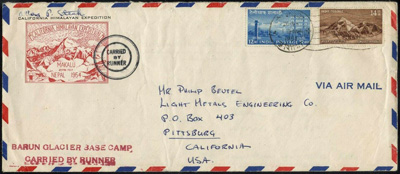 CALIFORNIA HIMALAYAN EXPEDITION
CALIFORNIA HIMALAYAN EXPEDITION
MAKALU
NEPAL 1954
CARRIED
BY
RUNNER
VIA AIR MAIL
MR PHILIP BEUTEL
LIGHT METALS ENGINEERING CO.
P.O. BOX 403
PITTSBURG
CALIFORNIA
U.S.A.
BARUN GLACIER BASE CAMP,
CARRIED BY RUNNER